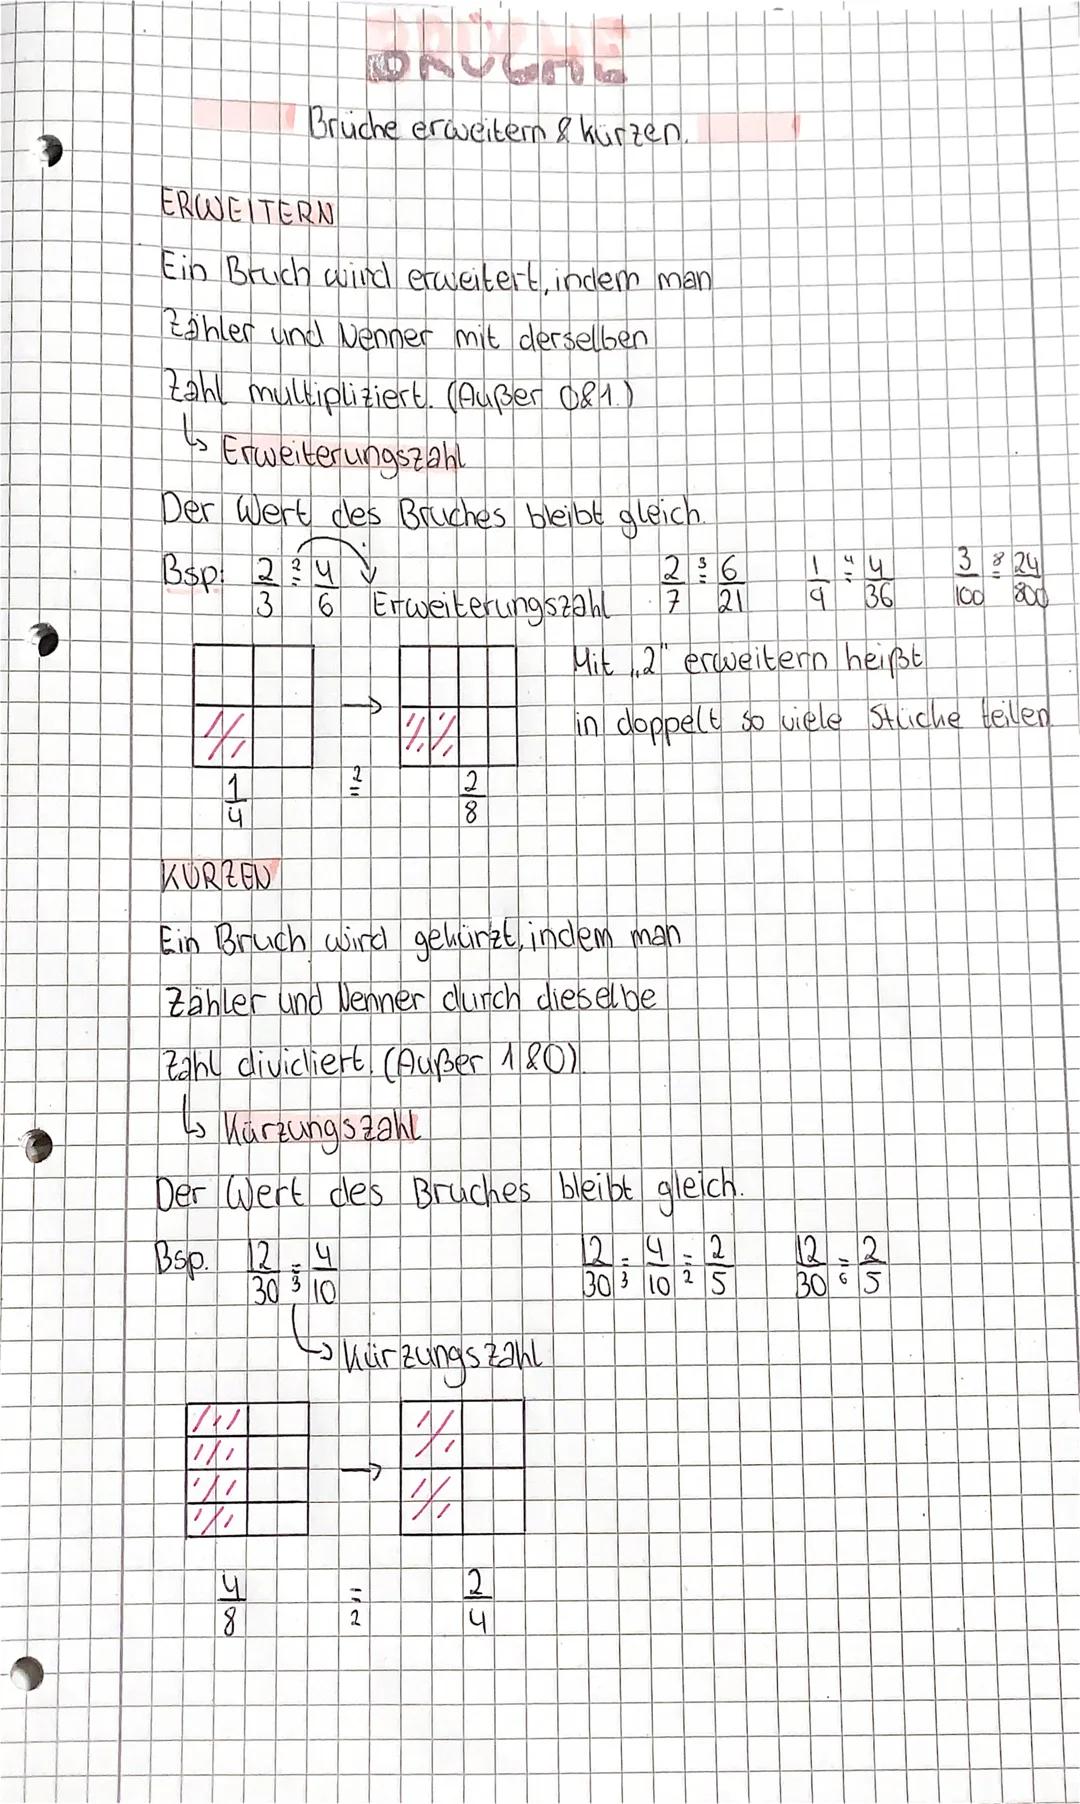 BRÜCHE
Brüche erweitern & kürzen.
ERWEITERN
Ein Bruch wird erweitert, indem man
Zähler und Nenner mit derselben
Zahl multipliziert. (Außer 0&1.)
↳ Erweiterungszahl
Der Wert des Bruches bleibt gleich.
Bsp: 2/3 =² 4/6 Erweiterungszahl 2/7 =³ 6/21 1/9 =⁴ 4/36 3/100 =⁸ 24/800
Mit „2" erweitern heißt
in doppelt so viele Stücke teilen
1/4 =² 2/8
KÜRZEN
Ein Bruch wird gekürzt, indem man
Zähler und Nenner durch dieselbe
Zahl dividiert. (Außer 1&0)
↳ Kürzungszahl
Der Wert des Bruches bleibt gleich.
Bsp. 12/30 =₃ 4/10 12/30 =₃ 4/10 =₂ 2/5 12/30 =₆ 2/5
↳ Kürzungszahl
4/8 =₂ 2/4